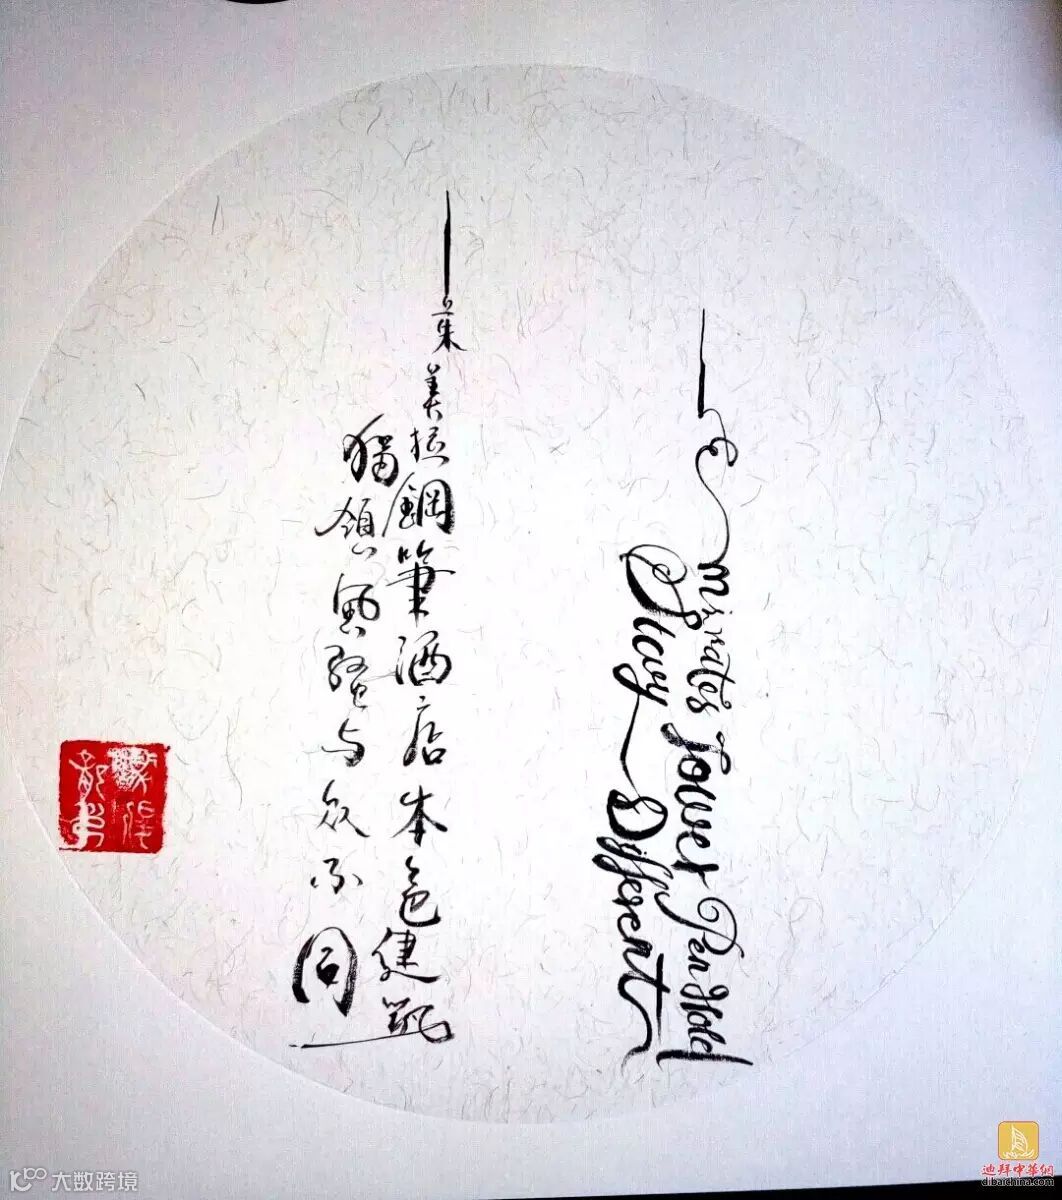 Emirates Tower Pen Hotel
Stay Different
茱美拉鋼筆酒店本色
獨領風騷与众不同
大数跨境
迪拜中華網
dibaichina.com